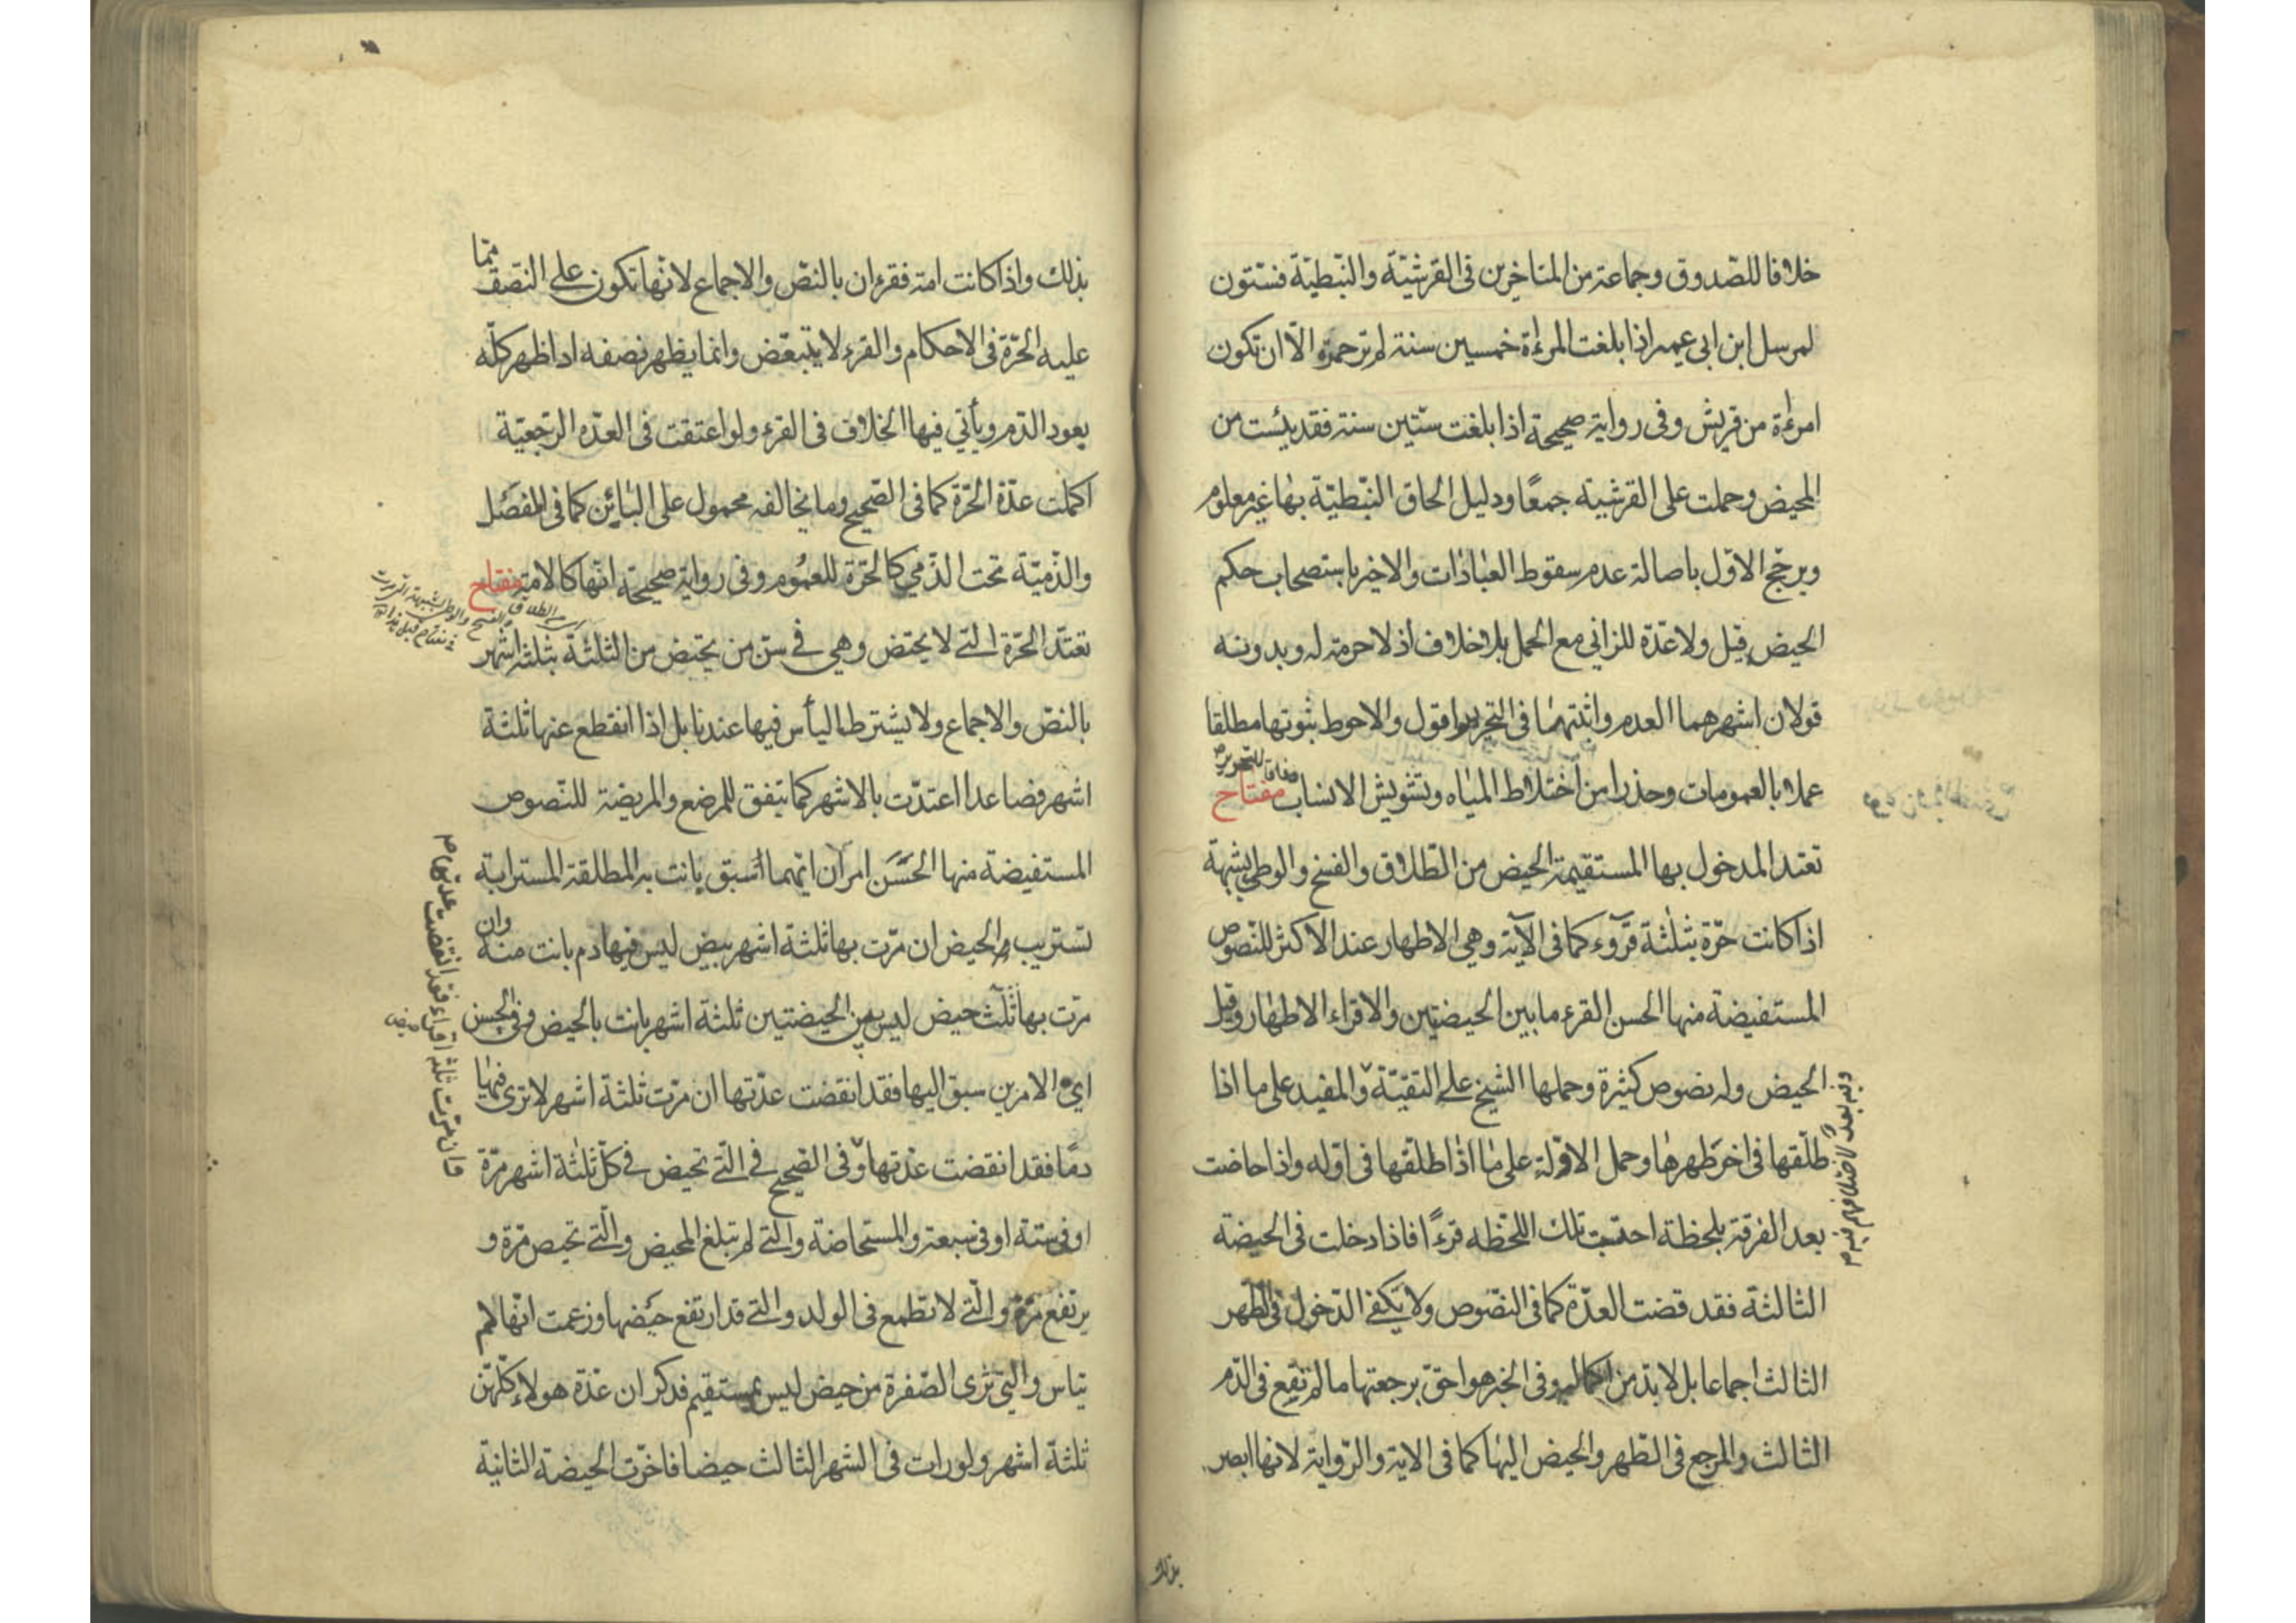 خلافا للصّدوق وجماعة من المتاخرين فى القرشيّة والنّبطيّة فستّون
لمرسل ابن ابى عمير اذا بلغت المرءة خمسين سنة لم تر حمرة الّا ان تكون
امرءة من قريش وفى رواية صحيحة اذا بلغت ستّين سنة فقد يئست من
المحيض وحملت على القرشيه جمعًا ودليل الحاق النّبطيّة بها غير معلوم
ويرجّح الاوّل باصالة عدم سقوط العبادات والاخير باستصحاب حكم
الحيض قيل ولا عدّة للزاني مع الحمل بلا خلاف اذ لا حرمة له وبدونه
قولان اشهرهما العدم واثبتهما فى التحرير اقول والاحوط ثبوتها مطلقا
وفاقا للتحرير
عملا بالعمومات وحذرا من اختلاط المياه وتشويش الانساب مفتاح
تعتد المدخول بها المستقيمة الحيض من الطّلاق والفسخ والوطى بشبهة
اذا كانت حرّة بثلثة قروء كما فى الآية وهي الاطهار عند الاكثر للنّصوص
المستفيضة منها الحسن القرء ما بين الحيضتين والاقراء الاطهار وقيل
الحيض وله نصوص كثيرة وحملها الشيخ على التقيّة والمفيد على ما اذا
طلّقها فى اخر طهرها وحمل الاوّلة على ما اذا طلقها فى اوّله واذا حاضت
بعد الفرقة بلحظة احتسبت تلك اللحظه قرءًا فاذا دخلت فى الحيضة
الثالثة فقد قضت العدّة كما فى النصّوص ولا يكفى الدّخول فى الطّهر
الثالث اجماعا بل لا بدّ من اكماله وفى الخبر هو احقّ برجعتها ما لم تقع فى الدّم
الثالث والمرجع فى الطّهر والحيض اليها كما فى الاية والرّواية لانها ابصر
بذلك
بذلك واذا كانت امة فقرءان بالنصّ والاجماع لانّها تكون على النّصف ممّا
عليه الحرّة فى الاحكام والقرء لا يتبعّض وانما يظهر نصفه اذا ظهر كلّه
يعود الدّم ويأتي فيها الخلاف فى القرء ولو اعتقت فى العدّه الرّجعيّة
اكملت عدّة الحرّة كما فى الصّحيح وما يخالفه محمول على البائن كما فى المفصّل
والذّميّة تحت الذّمي كالحرّة للعموم وفى رواية صحيحة انّها كالامة مفتاح
تعتدّ الحرّة الّتي لا يحتض وهي في سنّ من يحتض من الثلثة بثلثة اشهر
بالنصّ والاجماع ولا يشترط الياس فيها عندنا بل اذا انقطع عنها ثلثة
اشهر فصاعدا اعتدّت بالاشهر كما يتفق للمرضع والمريضة للنّصوص
المستفيضة منها الحسَن امران ايّهما اسبق بانت به المطلقة المسترابة
تستريب الحيض ان مرّت بها ثلثة اشهر بيض ليس فيها دم بانت منه وان
مرّت بها ثلث حيض ليس بين الحيضتين ثلثة اشهر بانت بالحيض وفى الحسن
اي الامرين سبق اليها فقد انقضت عدّتها ان مرّت ثلثة اشهر لا ترى فيها
دمًا فقد انقضت عدّتها وفى الصّحيح في الّتي تحيض في كلّ ثلثة اشهر مرّة
او فى ستة او فى سبعة والمستحاضة والّتي لم تبلغ المحيض والّتي تحيض مرّة و
يرتفع مرّة والّتي لا تطمع فى الولد والتي قد ارتفع حيضها وزعمت انّها لم
تياس والّتي ترى الصّفرة من حيض ليس بمستقيم فذكر ان عدّة هولاء كلّهن
ثلثة اشهر ولو رات فى الشهر الثالث حيضا فاخرت الحيضة الثانية
فان مرّت ثلثة اقراء فقد انقضت عدّتها م